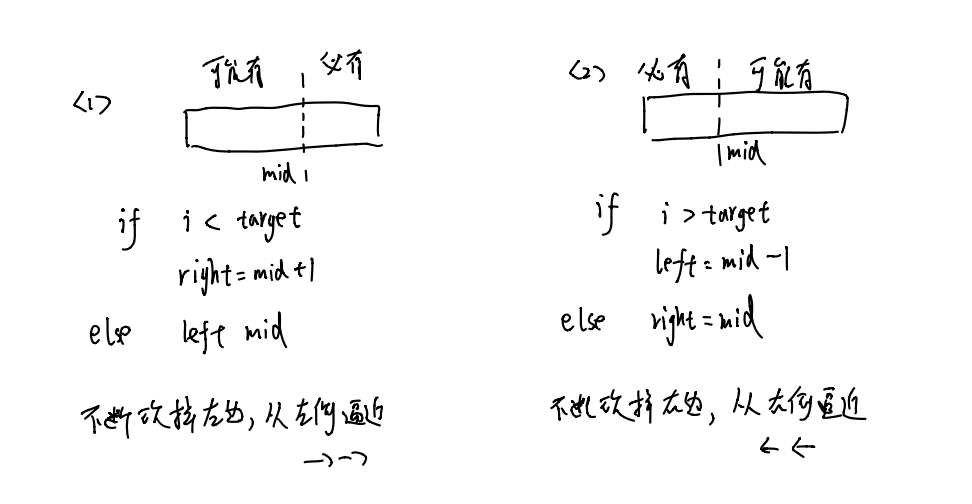 <1>
可能有 必有
mid
if i < target
right = mid + 1
else left mid
不断砍掉左边,从左侧逼近
→→
<2> 必有 可能有
mid
if i > target
left = mid - 1
else right = mid
不断砍掉右边,从右侧逼近
← ←